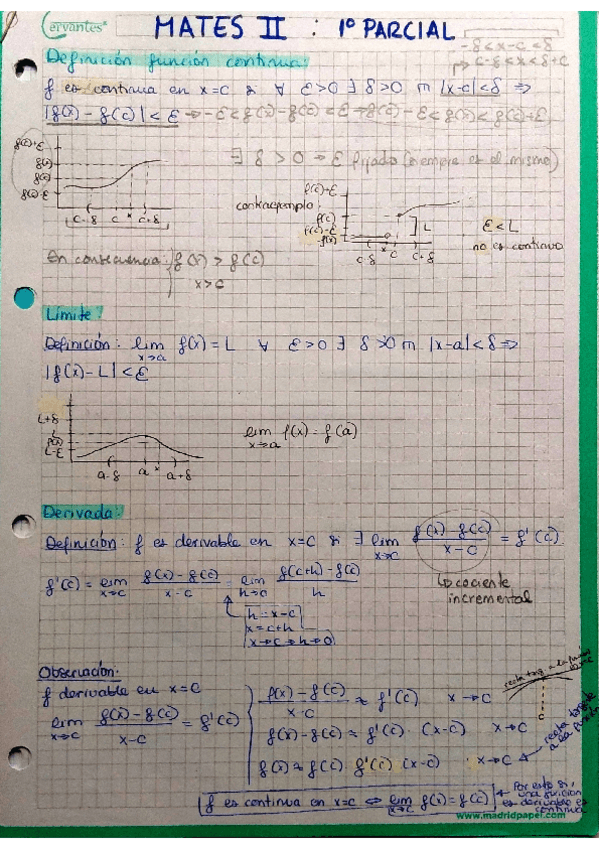 Cervantes
MATES II : 1º PARCIAL
-δ<x-c<δ
c-δ<x<δ+c
Definición función continua:
f es continua en x=c si ∀ ε>0 ∃ δ>0 m |x-c|<δ ⇒
|f(x)-f(c)|<ε → -ε<f(x)-f(c)<ε → f(c)-ε<f(x)<f(c)+ε
f(c)+ε
f(x)
f(c)
f(c)-ε
c-δ c x c+δ
∃ δ>0 → ε fijado (siempre es el mismo)
contraejemplo:
f(c)+ε
f(c)
f(c)-ε
f(x)
L
c-δ x c c+δ
ε<L
no es continua
En consecuencia: f(x) > f(c)
x>c
Límite:
Definición: lim f(x)=L ∀ ε>0 ∃ δ>0 m |x-a|<δ ⇒
x→a
|f(x)-L|<ε
L+δ
L
f(x)
L-ε
a-δ a x a+δ
lim f(x)=f(a)
x→a
Derivada:
Definición: f es derivable en x=c si ∃ lim f(x)-f(c) / x-c = f'(c)
x→c
↳ cociente
incremental
f'(c) = lim f(x)-f(c) / x-c = lim f(c+h)-f(c) / h
x→c h→0
h=x-c
x=c+h
x→c → h→0
Observación:
f derivable en x=c
lim f(x)-f(c) / x-c = f'(c)
x→c
f(x)-f(c) / x-c ≈ f'(c) x→c
f(x)-f(c) ≈ f'(c)·(x-c) x→c
f(x) ≈ f(c) · f'(c)·(x-c) x→c
recta tang. a la
c
recta tang
a la
f es continua en x=c ⇔ lim f(x)=f(c)
x→c
Por esto si
una función
es derivable es
continua
www.madridpapel.com